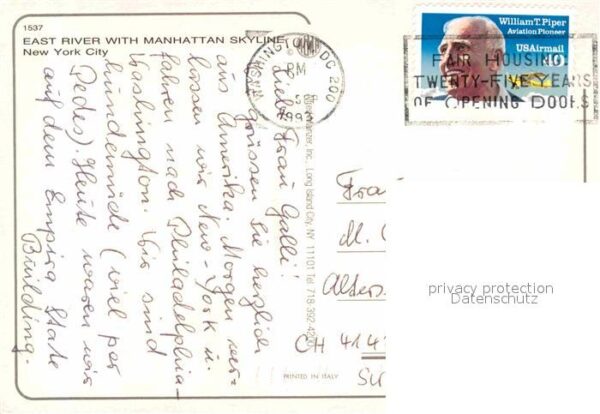 1537
EAST RIVER WITH MANHATTAN SKYLINE
New York City
Liebe Frau Galli!
Grüssen Sie herzlich
aus Amerika. Morgen ver-
lassen wir New-York u.
fahren nach Philadelphia-
Washington. Wir sind
hundemüde (viel per
Pedes). Heute waren wir
auf dem Empire State
Building.
WASHINGTON DC 200
PM
1993
William T. Piper
Aviation Pioneer
USAirmail
40
FAIR HOUSING
TWENTY-FIVE YEARS
OF OPENING DOORS
Inc., Long Island City, NY 11101 Tel. 718-392-4200
Frau
M.
Alters
CH 414
PRINTED IN ITALY
privacy protection
Datenschutz